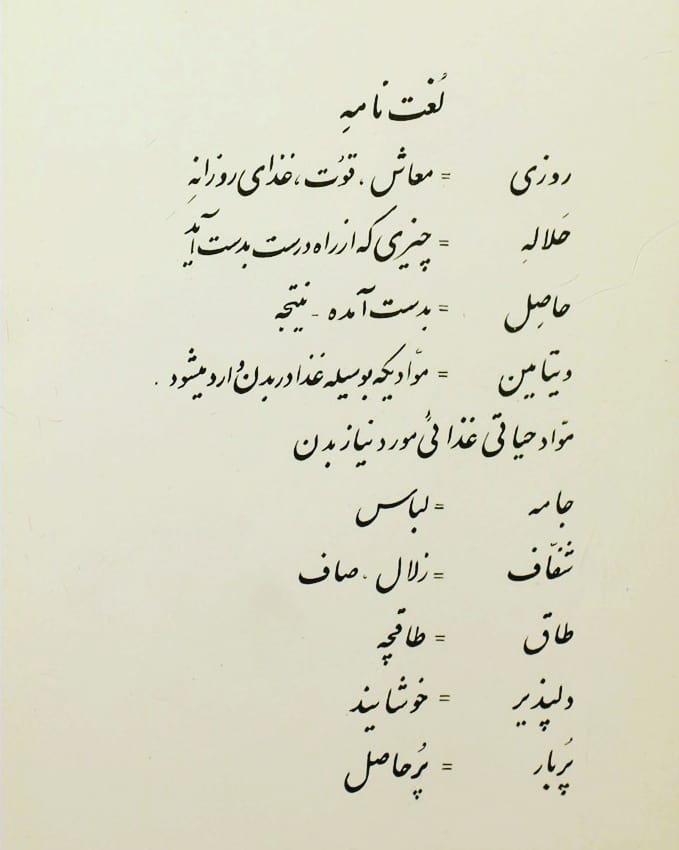 لُغت نامهِ
روزی = معاش ، قوُت ، غذای روزانهِ
حَلالهِ = چیزی که از راه درست بدست آید
حاصِل = بدست آمده - نتیجه
ویتامین = موّادیکه بوسیله غذا در بدن وارد میشود .
موّاد حیاتی غذائیُ مورد نیاز بدن
جامه = لباس
شفّاف = زلال . صاف
طاق = طاقچه
دلپذیر = خوشایند
پُربار = پُرحاصل